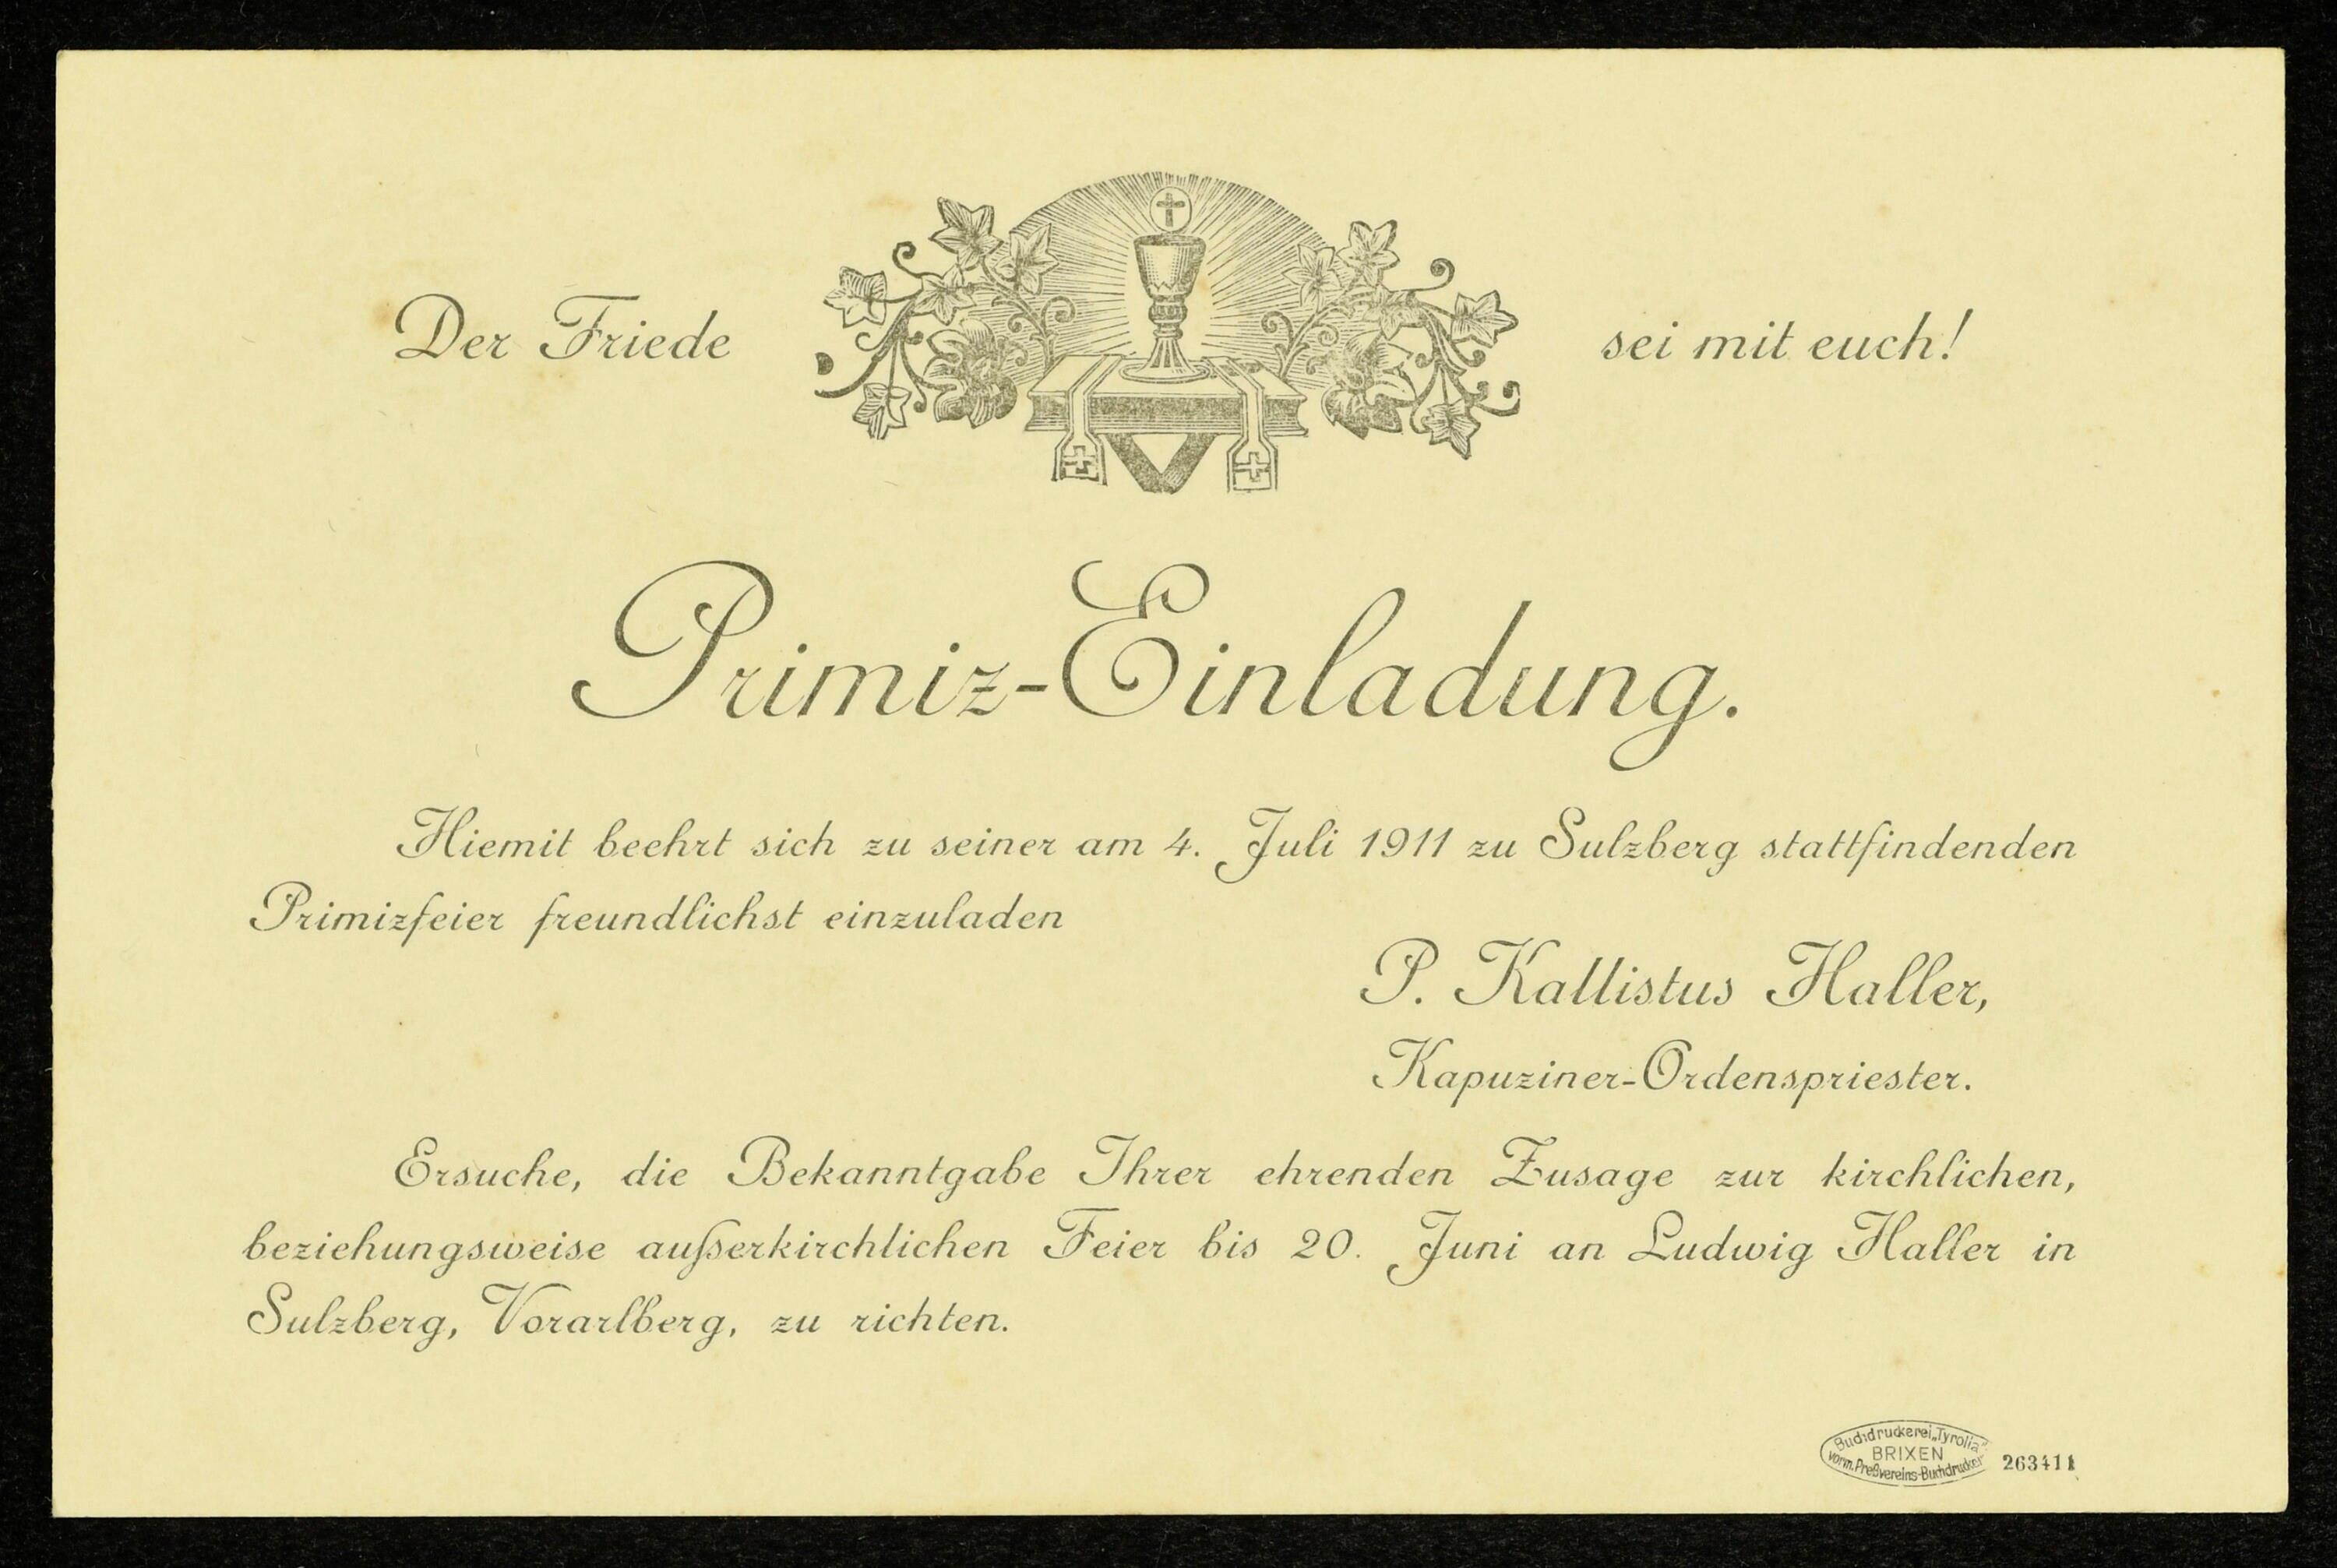 Der Friede sei mit euch!
Primiz-Einladung.
Hiemit beehrt sich zu seiner am 4. Juli 1911 zu Sulzberg stattfindenden
Primizfeier freundlichst einzuladen
P. Kallistus Haller,
Kapuziner-Ordenspriester.
Ersuche, die Bekanntgabe Ihrer ehrenden Zusage zur kirchlichen,
beziehungsweise außerkirchlichen Feier bis 20. Juni an Ludwig Haller in
Sulzberg, Vorarlberg, zu richten.
Buchdruckerei „Tyrolia"
BRIXEN
vorm. Preßvereins-Buchdrucker
263411